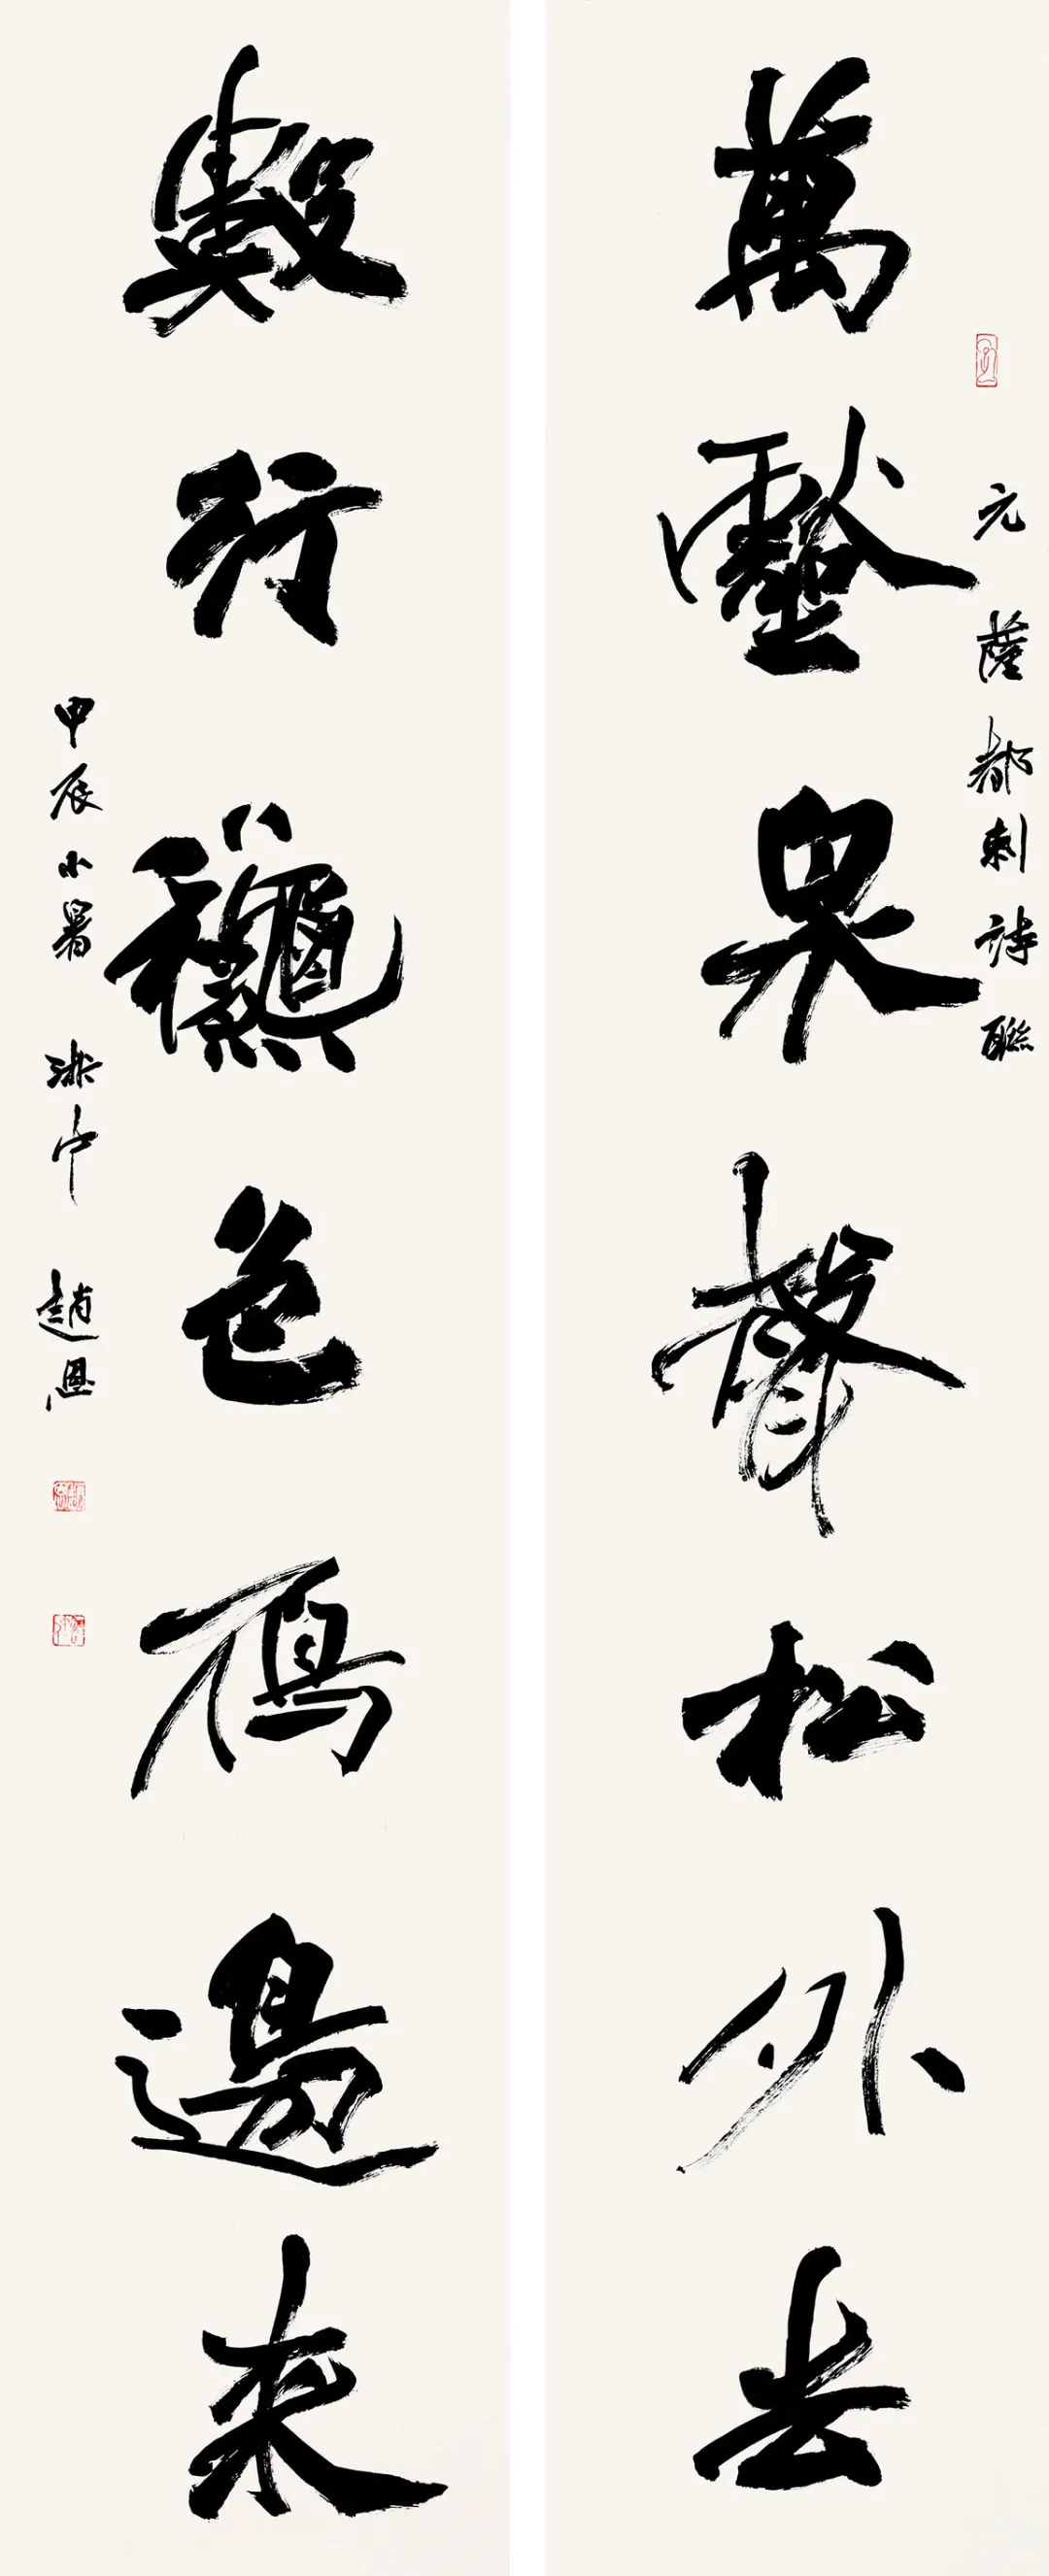 元薩都剌詩聯
萬壑泉聲松外去
數行龝色鴈邊來
甲辰小暑 中 趙恩